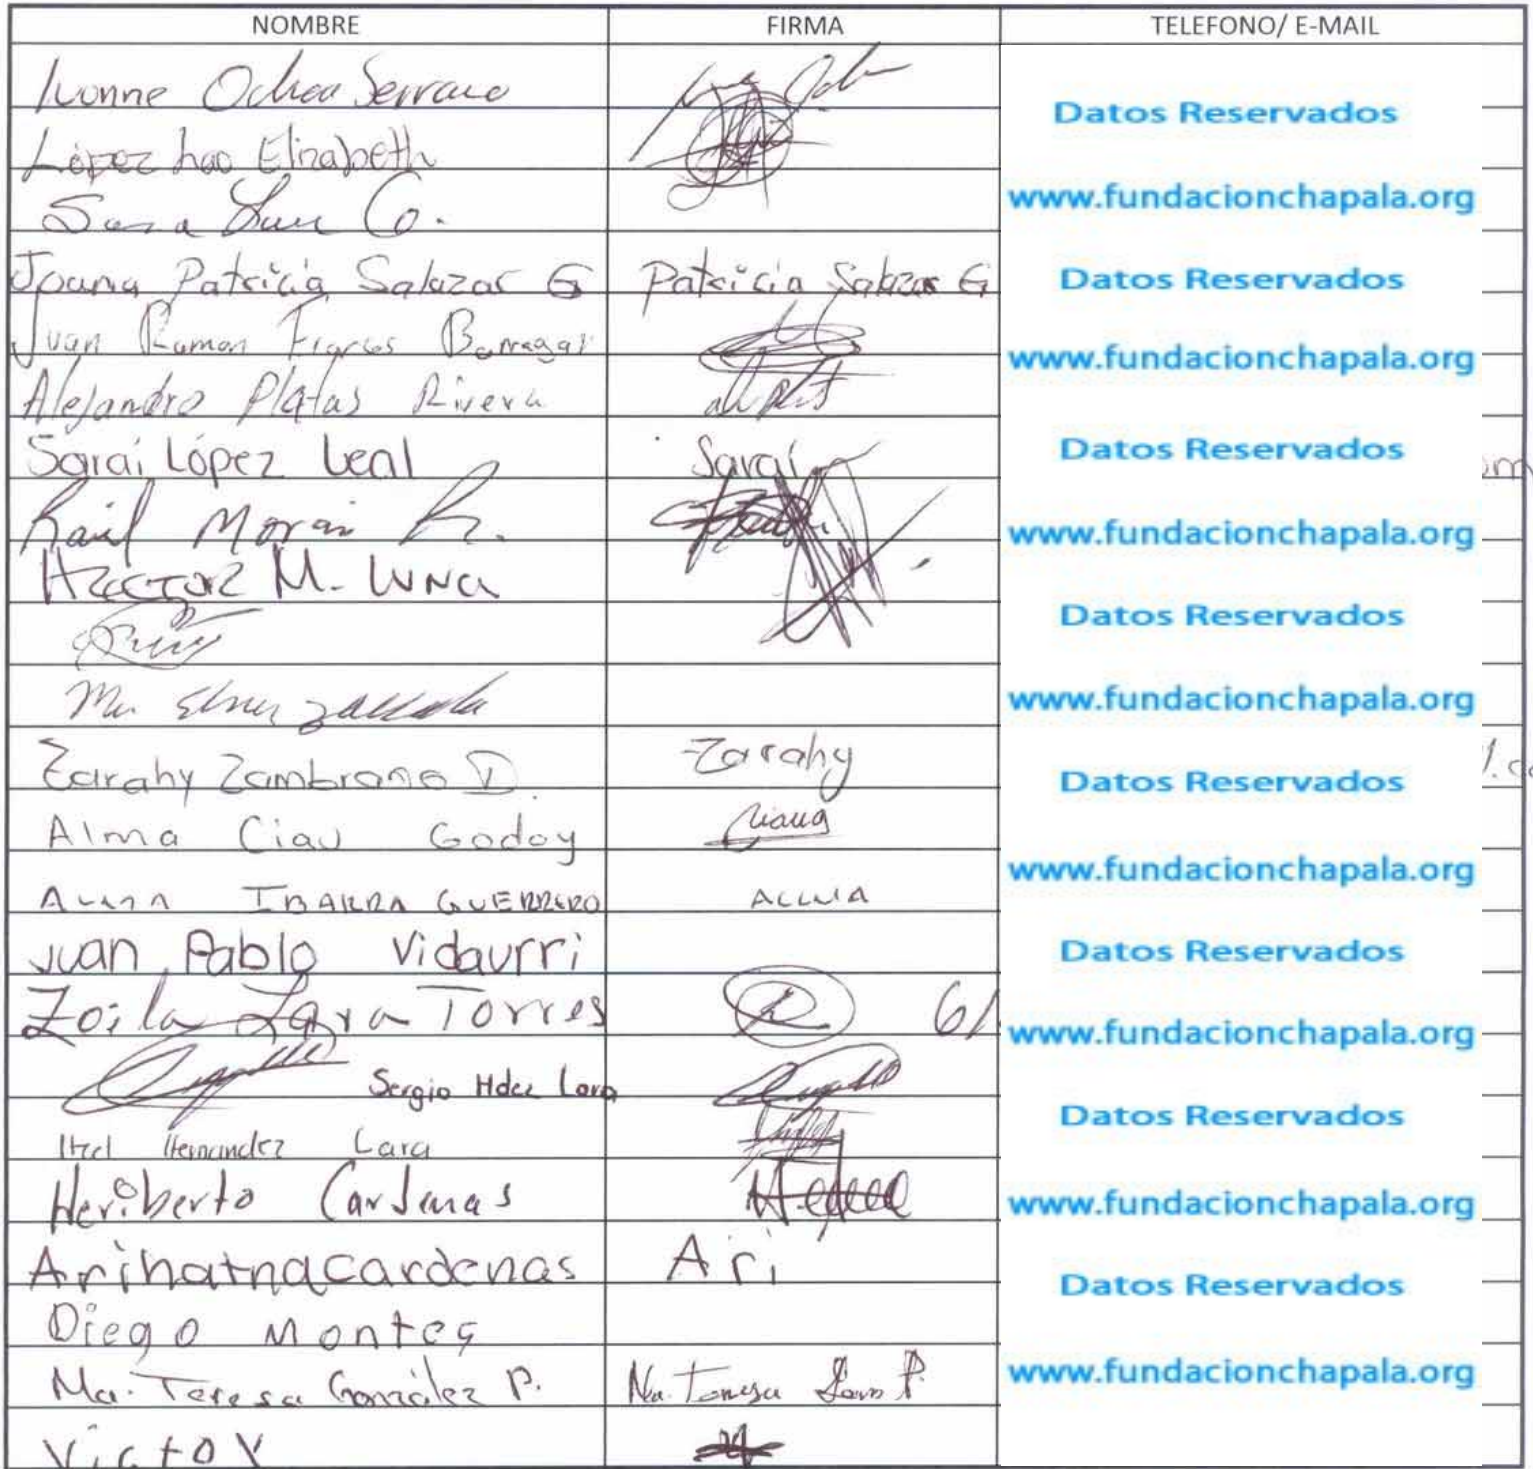 NOMBRE FIRMA TELEFONO/ E-MAIL
Ivonne Ochoa Serrano
Datos Reservados
López Elizabeth
www.fundacionchapala.org
Joana Patricia Salazar G Patricia Salazar G
Datos Reservados
Juan Ramon Barragan
www.fundacionchapala.org
Alejandro Platas Rivera
Sarai López Leal Sarai
Datos Reservados
Raúl Morán R.
www.fundacionchapala.org
Hector M. Luna
Datos Reservados
Ma.
www.fundacionchapala.org
Zarahy Zambrano D. Zarahy
Datos Reservados
Alma Ciau Godoy
www.fundacionchapala.org
IBARRA GUERRERO
Juan Pablo Vidaurri
Datos Reservados
Zoila Lara Torres 61
www.fundacionchapala.org
Sergio Hdez Lara
Datos Reservados
Itzel Hernandez Lara
Heriberto Cardenas
www.fundacionchapala.org
Arihatnacardenas Ari
Datos Reservados
Diego Montes
Ma. Teresa González P. Ma. Teresa
www.fundacionchapala.org
Victor